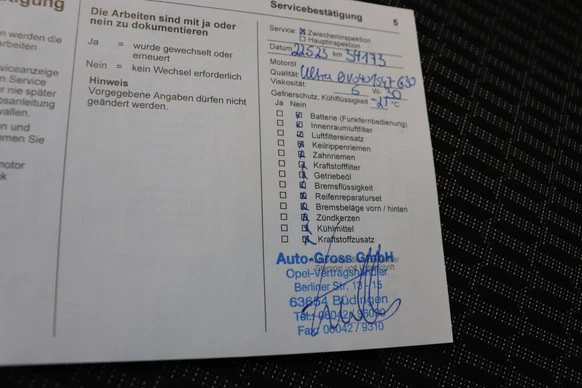 Servicebestätigung
5
en werden die
rbeiten
viceanzeige
n Service
r nie später
osanleitung
vallen.
en und
hmen Sie
notor
k
Die Arbeiten sind mit ja oder
nein zu dokumentieren
Ja = wurde gewechselt oder
erneuert
Nein = kein Wechsel erforderlich
Hinweis
Vorgegebene Angaben dürfen nicht
geändert werden.
Service: Zwischeninspektion
Hauptinspektion
Datum 22.5.23 km 34173
Motoröl
Qualität:
Viskosität: 5 W- 30
Gefrierschutz, Kühlflüssigkeit -25 °C
Ja Nein
Batterie (Funkfernbedienung)
Innenraumluftfilter
Luftfiltereinsatz
Keilrippenriemen
Zahnriemen
Kraftstofffilter
Getriebeöl
Bremsflüssigkeit
Reifenreparaturset
Bremsbeläge vorn / hinten
Zündkerzen
Kühlmittel
Kraftstoffzusatz
Auto-Gross GmbH
Opel-Vertragshändler
Berliner Str. 13 - 15
63654 Büdingen
Tel.: 06042 /
Fax: 06042 / 9310